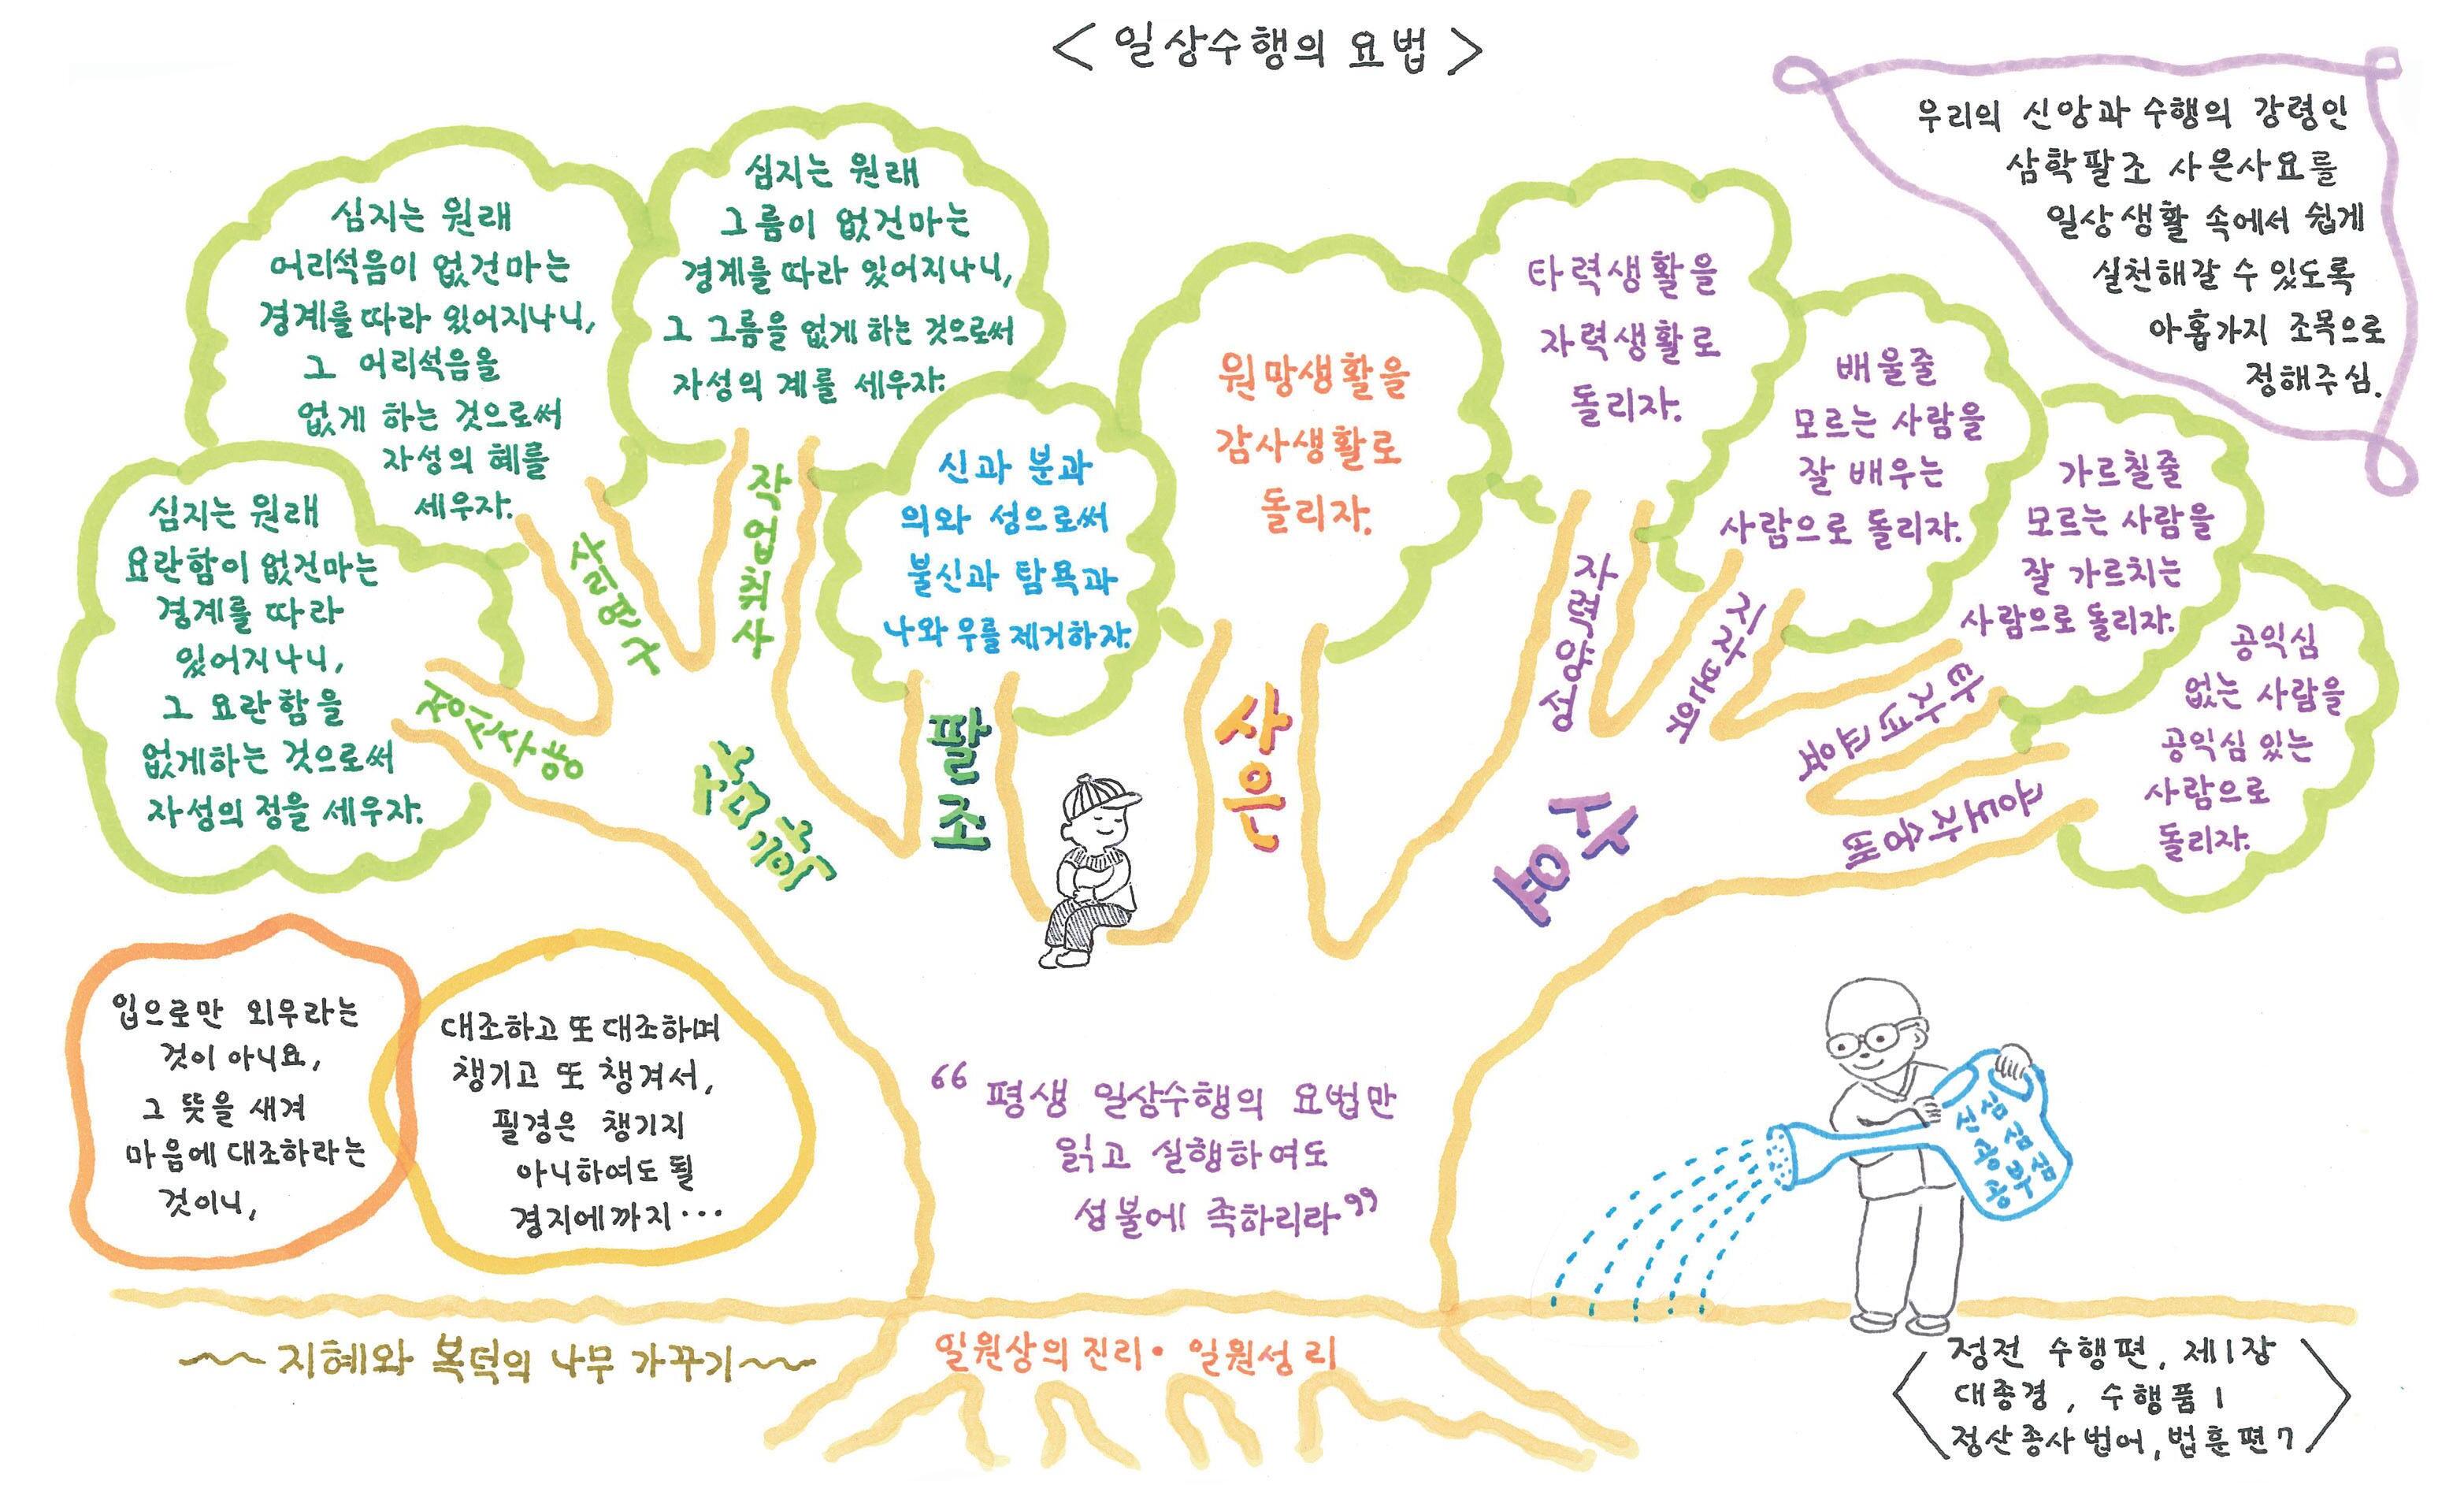 < 일상수행의 요법 >
우리의 신앙과 수행의 강령인
삼학팔조 사은사요를
일상생활 속에서 쉽게
실천해갈 수 있도록
아홉가지 조목으로
정해주심.
심지는 원래
요란함이 없건마는
경계를 따라
있어지나니,
그 요란함을
없게하는 것으로써
자성의 정을 세우자.
정신수양
심지는 원래
어리석음이 없건마는
경계를 따라 있어지나니,
그 어리석음을
없게 하는 것으로써
자성의 혜를
세우자.
사리연구
심지는 원래
그름이 없건마는
경계를 따라 있어지나니,
그 그름을 없게 하는 것으로써
자성의 계를 세우자.
작업취사
삼학
신과 분과
의와 성으로써
불신과 탐욕과
나와 우를 제거하자.
팔조
원망생활을
감사생활로
돌리자.
사은
타력생활을
자력생활로
돌리자.
자력양성
배울줄
모르는 사람을
잘 배우는
사람으로 돌리자.
지자본위
가르칠줄
모르는 사람을
잘 가르치는
사람으로 돌리자.
타자녀교육
공익심
없는 사람을
공익심 있는
사람으로
돌리자.
공도자숭배
사요
입으로만 외우라는
것이 아니요,
그 뜻을 새겨
마음에 대조하라는
것이니,
대조하고 또 대조하며
챙기고 또 챙겨서,
필경은 챙기지
아니하여도 될
경지에까지...
“평생 일상수행의 요법만
읽고 실행하여도
성불에 족하리라”
신심
공부심
공심
~~ 지혜와 복덕의 나무 가꾸기 ~~
일원상의 진리· 일원성리
정전 수행편, 제1장
대종경, 수행품 1
정산종사 법어, 법훈편 7